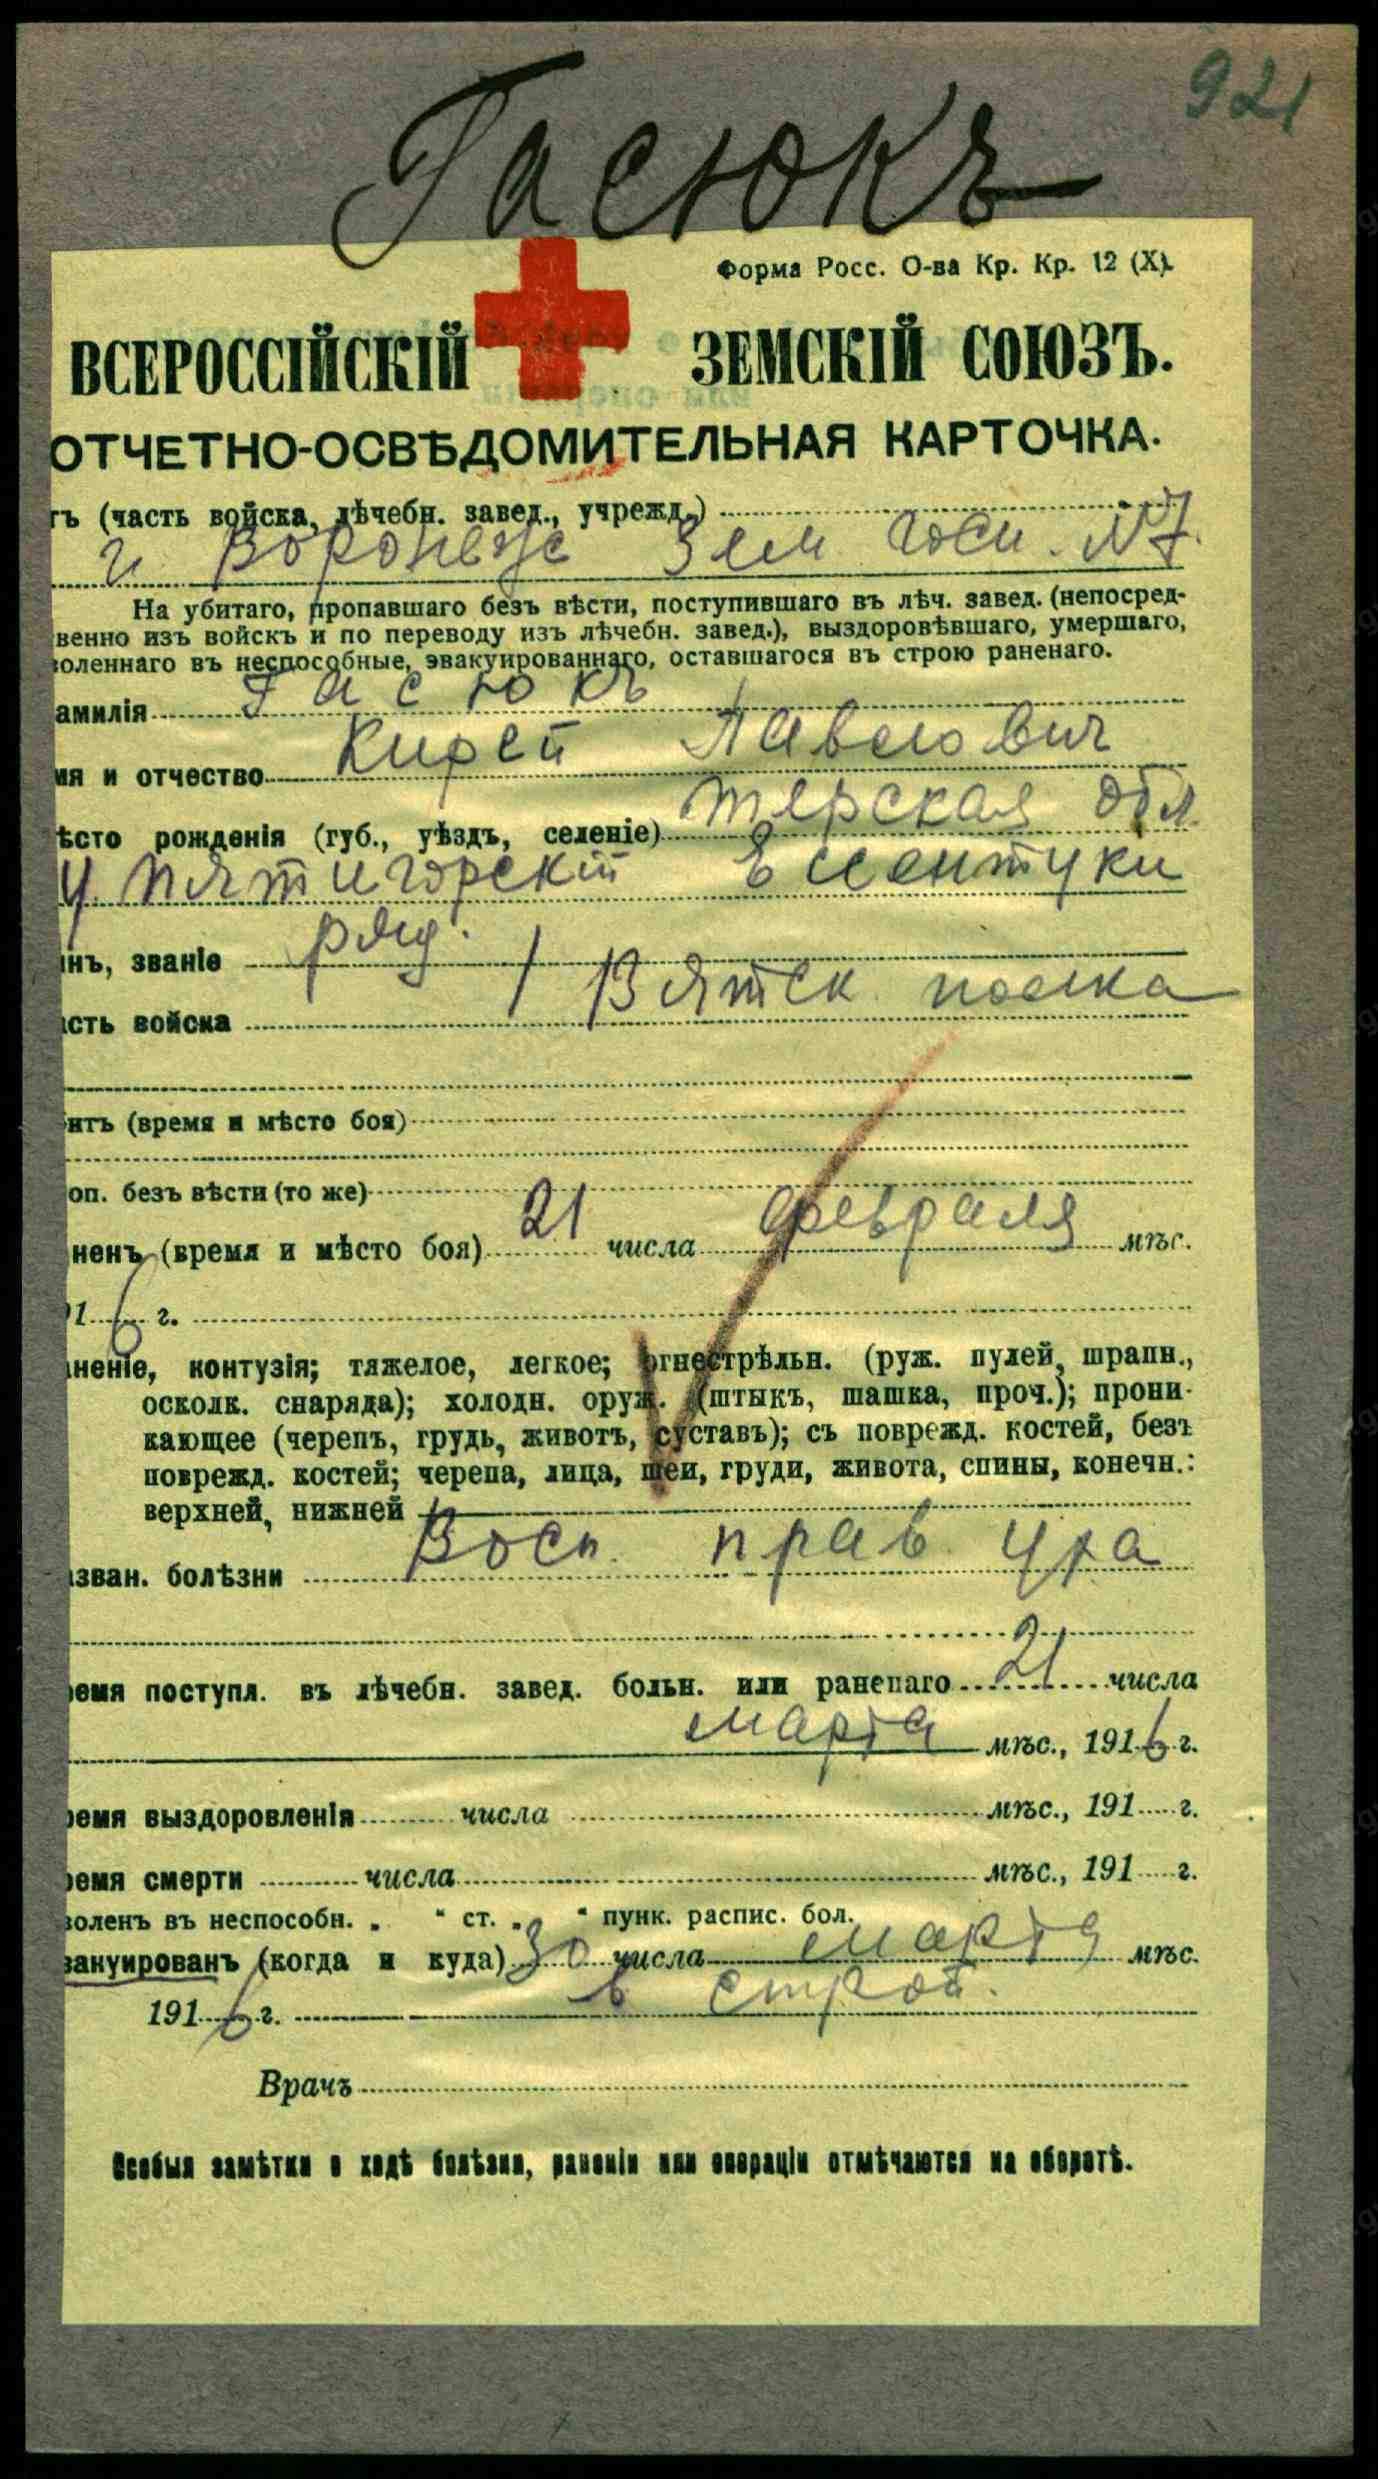 921
Гасюкъ
Форма Росс. О-ва Кр. Кр. 12 (X).
ВСЕРОССІЙСКІЙ ЗЕМСКІЙ СОЮЗЪ.
ОТЧЕТНО-ОСВѢДОМИТЕЛЬНАЯ КАРТОЧКА.
тъ (часть войска, лѣчебн. завед., учрежд.)
г Воронеже Зем госп. №7.
На убитаго, пропавшаго безъ вѣсти, поступившаго въ лѣч. завед. (непосред-
венно изъ войскъ и по переводу изъ лѣчебн. завед.), выздоровѣвшаго, умершаго,
воленнаго въ неспособные, эвакуированнаго, оставшагося въ строю раненаго.
амилія Гасюкъ
мя и отчество Кирей Павлович
ѣсто рожденія (губ., уѣздъ, селеніе) Терская обл.
у. Пятигорскій Есентуки
инъ, званіе ряд.
асть войска 1 Вятск полка
итъ (время и мѣсто боя)
оп. безъ вѣсти (то же)
ненъ (время и мѣсто боя) 21 числа февраля мѣс.
91 6 г.
аненіе, контузія; тяжелое, легкое; огнестрѣльн. (руж. пулей, шрапн.,
осколк. снаряда); холодн. оруж. (штыкъ, шашка, проч.); прони-
кающее (черепъ, грудь, животъ, суставъ); съ поврежд. костей, безъ
поврежд. костей; черепа, лица, шеи, груди, живота, спины, конечн.:
верхней, нижней
азван. болѣзни Восп. прав. уха
ремя поступл. въ лѣчебн. завед. больн. или раненаго 21 числа
марта мѣс., 1916 г.
ремя выздоровленія числа мѣс., 191 г.
ремя смерти числа мѣс., 191 г.
воленъ въ неспособн. „ “ ст. „ “ пунк. распис. бол.
вакуированъ (когда и куда) 30 числа марта мѣс.
1916 г. в строй.
Врачъ
Особыя замѣтки о ходѣ болѣзни, раненіи или операціи отмѣчаются на оборотѣ.